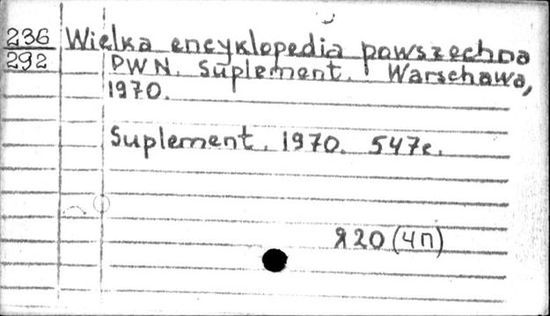 236 Wielka encyklopedia powszechna
292 PWN. Suplement. Warschawa,
1970.
Suplement. 1970. 547c.
Я20(4П)